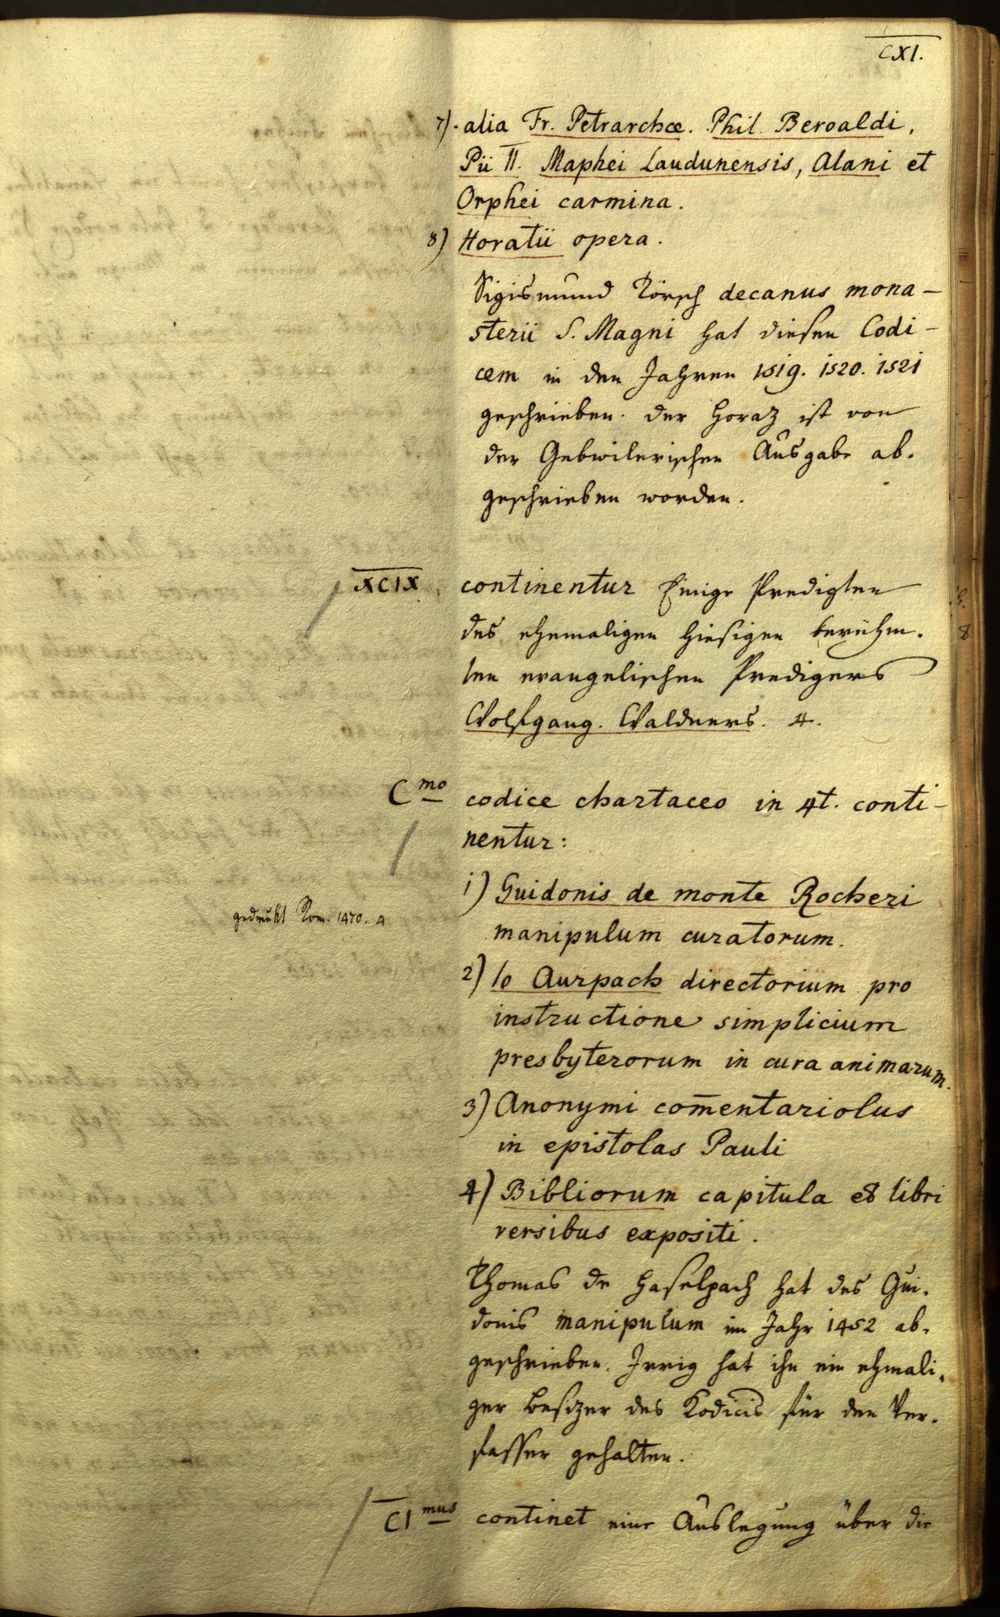 CXI.
7). alia Fr. Petrarchæ. Phil. Beroaldi,
Pii II. Maphei Laudunensis, Alani et
Orphei carmina.
8) Horatii opera.
Sigismund Törsch decanus mona-
sterii S. Magni hat diesen Codi-
cem in den Jahren 1519. 1520. 1521
geschrieben. der Horaz ist von
der Gebwilerischen Ausgabe ab-
geschrieben worden.
XCIX. continentur Einige Predigten
des ehemaligen hiesigen berühm-
ten evangelischen Predigers
Wolfgang. Waldners. 4.
C mo codice chartaceo in 4t. conti-
nentur:
1) Guidonis de monte Rocheri
gedrukt Rom. 1470. 4
manipulum curatorum.
2) Io Aurpach directorium pro
instructione simplicium
presbyterorum in cura animarum.
3) Anonymi com̄entariolus
in epistolas Pauli
4) Bibliorum capitula et libri
versibus expositi.
Thomas de Haselpach hat des Gui-
donis manipulum im Jahr 1452 ab-
geschrieben. Irrig hat ihn ein ehmali-
ger Besizer des Kodicis für den Ver-
fasser gehalten.
CI mus continet eine Auslegung über die